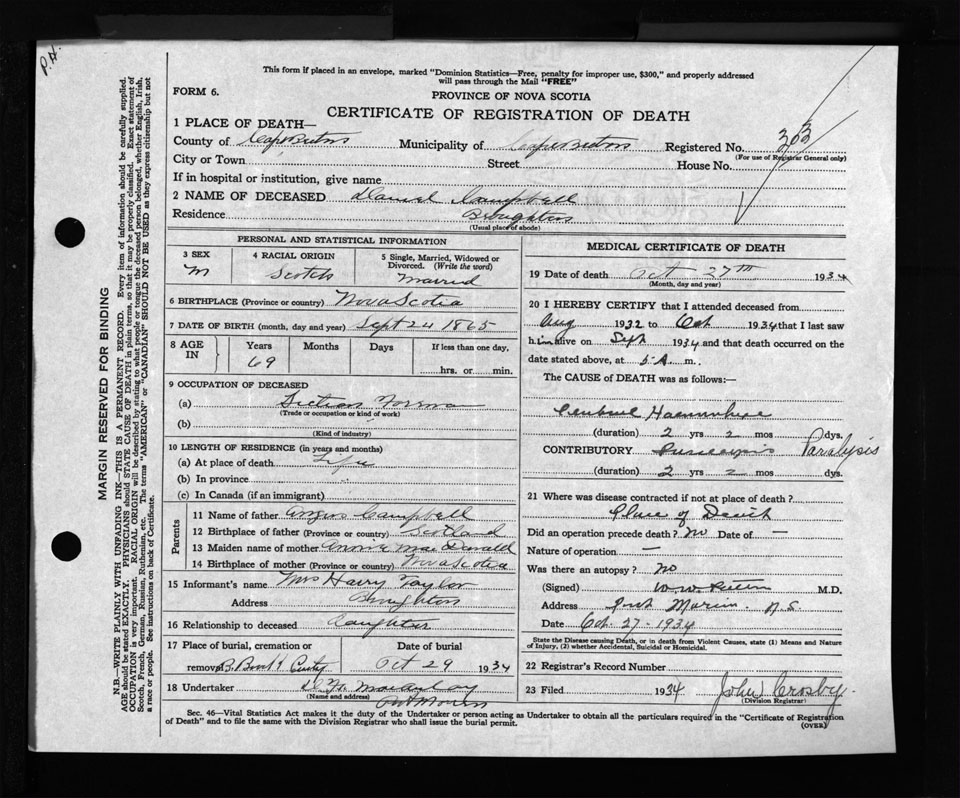 P.H.
This form if placed in an envelope, marked "Dominion Statistics—Free, penalty for improper use, $300," and properly addressed
will pass through the Mail "FREE"
FORM 6.
PROVINCE OF NOVA SCOTIA
CERTIFICATE OF REGISTRATION OF DEATH
1 PLACE OF DEATH—
County of Cape Breton Municipality of Cape Breton Registered No. 303
(For use of Registrar General only)
City or Town Street House No.
If in hospital or institution, give name
2 NAME OF DECEASED Daniel Campbell
Residence Broughton
(Usual place of abode)
PERSONAL AND STATISTICAL INFORMATION
3 SEX 4 RACIAL ORIGIN 5 Single, Married, Widowed or Divorced. (Write the word)
M Scotch Married
6 BIRTHPLACE (Province or country) Nova Scotia
7 DATE OF BIRTH (month, day and year) Sept 24 1865
8 AGE IN Years Months Days If less than one day,
69 hrs. or min.
9 OCCUPATION OF DECEASED
(a) Section
(Trade or occupation or kind of work)
(b)
(Kind of industry)
10 LENGTH OF RESIDENCE (in years and months)
(a) At place of death Life
(b) In province
(c) In Canada (if an immigrant)
Parents
11 Name of father Angus Campbell
12 Birthplace of father (Province or country) Scotland
13 Maiden name of mother Annie MacDonald
14 Birthplace of mother (Province or country) Nova Scotia
15 Informant's name Mrs Harry Taylor
Address Broughton
16 Relationship to deceased Daughter
17 Place of burial, cremation or removal Date of burial
Oct 29 1934
18 Undertaker
(Name and address)
MEDICAL CERTIFICATE OF DEATH
19 Date of death Oct 27TH 1934
(Month, day and year)
20 I HEREBY CERTIFY that I attended deceased from
Aug 1932 to Oct 1934 that I last saw
him alive on Sept 1934 and that death occurred on the
date stated above, at 5 A m.
The CAUSE of DEATH was as follows:—
(duration) 2 yrs 2 mos dys.
CONTRIBUTORY Paralysis
(duration) 2 yrs 2 mos dys.
21 Where was disease contracted if not at place of death?
Place of Death
Did an operation precede death? No Date of —
Nature of operation —
Was there an autopsy? No
(Signed) M.D.
Address Port Morien. N.S.
Date Oct-27-1934
State the Disease causing Death, or in death from Violent Causes, state (1) Means and Nature
of Injury, (2) whether Accidental, Suicidal or Homicidal.
22 Registrar's Record Number
23 Filed 1934 John J Crosby
(Division Registrar)
Sec. 46—Vital Statistics Act makes it the duty of the Undertaker or person acting as Undertaker to obtain all the particulars required in the "Certificate of Registration
of Death" and to file the same with the Division Registrar who shall issue the burial permit.
(OVER)
MARGIN RESERVED FOR BINDING
N.B.—WRITE PLAINLY WITH UNFADING INK—THIS IS A PERMANENT RECORD. Every item of information should be carefully supplied.
AGE should be stated EXACTLY. PHYSICIANS should STATE CAUSE OF DEATH in plain terms, so that it may be properly classified. Exact statement of
OCCUPATION is very important. RACIAL ORIGIN will be described by stating to what people or tongue the deceased person belonged, whether English, Irish,
Scotch, French, German, Russian, Ruthenian, etc. The terms "AMERICAN" or "CANADIAN" SHOULD NOT BE USED as they express citizenship but not
a race or people. See instructions on back of Certificate.